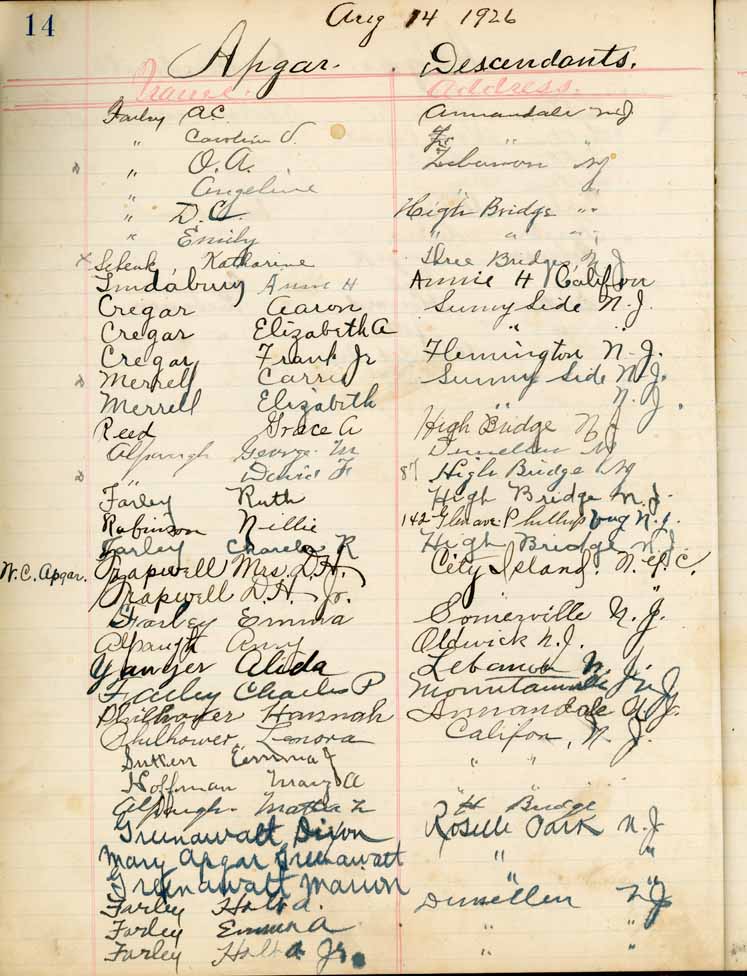 14
Aug 14 1926
Apgar. Descendants.
Name. Address.
Farley A.C. Annandale N.J
" Caroline V.
" O.A. Lebanon NJ
" Angeline "
" D.C. High Bridge "
" Emily " " "
x Schenk, Katharine Three Bridges N.J
Lindabury Annie H Annie H Califon
Cregar Aaron Sunny Side N.J.
Cregar Elizabeth A " "
Cregar Frank Jr Flemington N.J.
Merrell Carrie Sunny Side N.J.
Merrell Elizabeth " N.J.
Reed Grace A High Bridge N J
Alpaugh George M Dunellen NJ
" David F 87 High Bridge NJ
Farley Ruth High Bridge N.J.
Robinson Nillie 142 Glen ave. Phillipsburg N.J.
Farley Charles R High Bridge N.J.
W.C. Apgar. Trapwell Mrs. D.H. City Island. N.Y.C.
Trapwell D.H. Jr. "
Farley Emma Somerville N.J.
Alpaugh Amy Oldwick N.J.
Yawger Alida Lebanon N.J.
Farley Charles P Mountainville N.J
Philhower Hannah Annandale N.J.
Philhower Lenora Califon, N.J.
Sutton Emma J " "
Hoffman Mary A
Alpaugh. Mattie "H Bridge
Greenawalt, Dixon Roselle Park N.J
Mary Apgar Greenawalt " "
Greenawalt Marion " "
Farley Holt A. Dunellen NJ
Farley Emma A " "
Farley Holt A Jr. " "